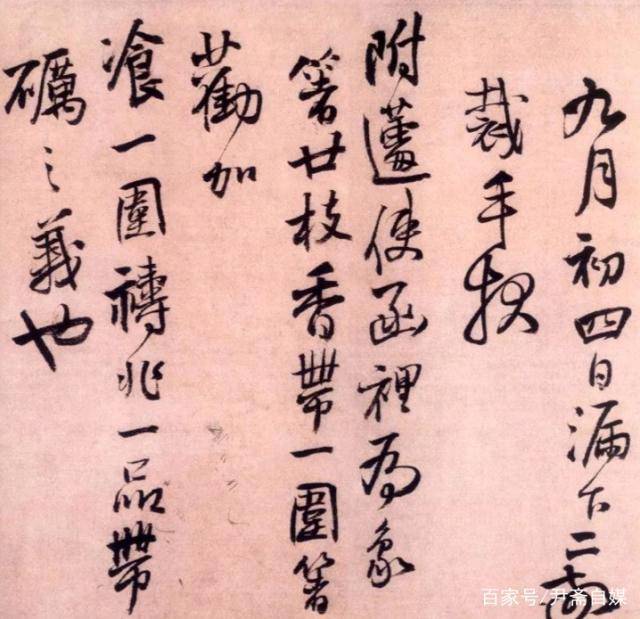 九月初四日漏下二
裁手
附使函裡為象
箸廿枝香帶一圍箸
勸加
湌一圍禱兆一品帶
礪之義也
百家号/尹斋自媒